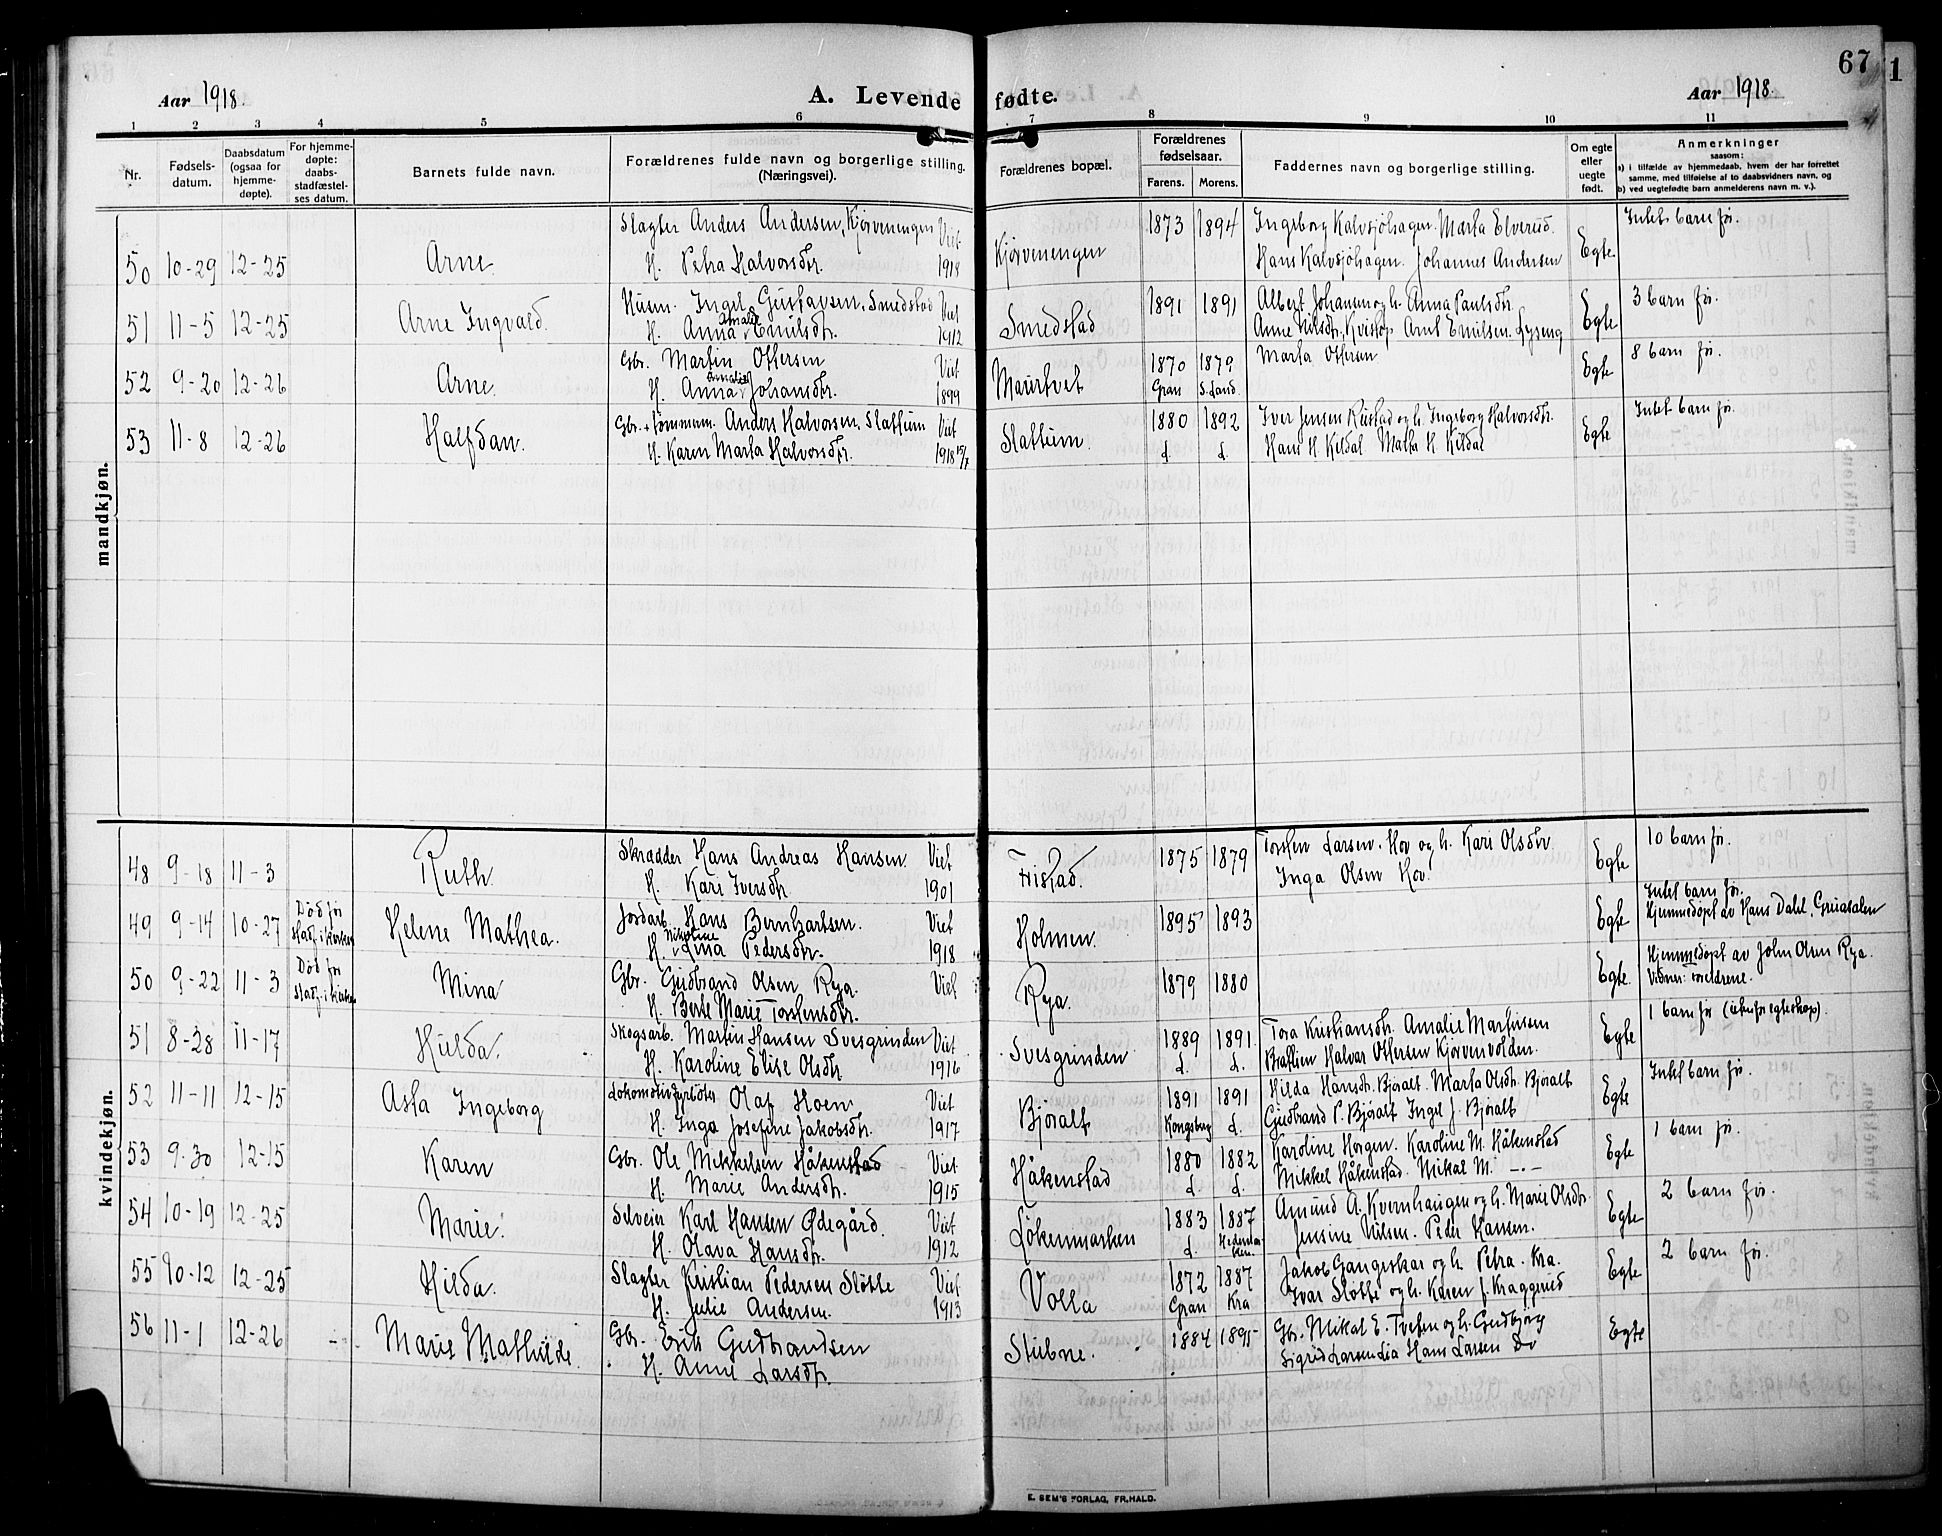 67
1
Aar 1918.
A. Levende fødte.
Aar 1918.
1 2 3 4 5 6 7 8 9 10 11
Nr.
Fødsels-
datum.
Daabsdatum
(ogsaa for
hjemme-
døpte).
For hjemme-
døpte:
daabs-
stadfæstel-
ses datum.
Barnets fulde navn.
Forældrenes fulde navn og borgerlige stilling.
(Næringsvei).
Forældrenes bopæl.
Forældrenes
fødselsaar.
Farens. Morens.
Faddernes navn og borgerlige stilling.
Om egte
eller
uegte
født.
Anmerkninger
saasom:
a) i tilfælde av hjemmedaab, hvem der har forrettet
samme, med tilføielse af to daabsvidners navn, og
b) ved uegtefødte barn anmelderens navn m. v.).
mandkjøn.
Slagter Anders Andersen, Kjørvenengen Viet 1873 1894 Ingeborg Kalvsjøhagen. Marta Elverud. Intet barn før.
50 10-29 12-25 Arne H. Petra Halvorsdtr. 1918 Kjørvenengen Hans Kalvsjøhagen. Johannes Andersen Egte
Husm. Ingel Gustavsen, Smedstad Viet 1891 1891 Albert Johansen og h. Anna Paulsdtr. 3 barn før.
51 11-5 12-25 Arne Ingvald. H. Anna Amalie Emilsdtr. 1912 Smedstad Anne Nilsdtr. Arnt Emilsen. Lyseng Egte
Gbr. Martin Ottersen Viet 1870 1879 Marta Ottersen 8 barn før.
52 9-20 12-26 Arne. H. Anna Amalie Johansdtr. 1899 Gran S. Land. Egte
Gbr. + tømmerm. Anders Halvorsen, Slattum Viet 1880 1892 Iver Jensen Rustad og h. Ingeborg Halvorsdtr. Intet barn før.
53 11-8 12-26 Halfdan. H. Karen Marta Halvorsdtr. 1918 15/7 Slattum. d. d. Hans H. Kildal Marta H. Kildal Egte
kvindekjøn.
Skradder Hans Andreas Hansen. Viet 1875 1879 Torsten Larsen. Hov og h. Kari Olsdtr. 10 barn før.
48 9-18 11-3 Ruth. H. Kari Iversdtr. 1901 Fristad. Inga Olsen Hov. Egte
Død før Jordarb. Hans Bernhartsen. Viet 1895 1893 Intet barn før.
49 9-14 10-27 stadf. i kirken Helene Mathea. H. Nikoline Lina Pedersdtr. 1918 Holmen. Egte Hjemmedøpt av Hans Dahl, Gruasalen
Død før Gbr. Gudbrand Olsen Rya. Viet 1879 1880 Hjemmedøpt av John Olsen Rya.
50 9-22 11-3 stadf. i kirken Mina H. Berte Marie Torstensdtr. Rya. Egte. Vidner: foreldrene.
Skogsarb. Martin Hansen Svesgrinden Viet 1889 1891. Tora Kristiansdtr. Amalie Martinsen 1 barn før (utenfor egteskap).
51 8-28 11-17 Hulda. H. Karoline Elise Olsdtr. 1916 Svesgrinden d. d. Halvar Ottersen Kjørvenvolden. Egte
Olaf Hoen Viet 1891 1891 Hilda Hansdtr. Bjøralt. Marta Olsdtr. Bjøralt Intet barn før.
52 11-11 12-15 Asta Ingeborg H. Inga Josefine Jakobsdtr. 1917 Bjøralt Kongsberg d. Gudbrand P. Bjøralt Ingel J. Bjøralt Egte
Gbr. Ole Mikkelsen Håkenstad Viet 1880 1882 Karoline Horgen. Karoline M. Håkenstad 1 barn før.
53 9-30 12-15 Karen H. Marie Andersdtr. 1915 Håkenstad d. d. Mikkel Håkenstad. Mikal M. —"— Egte
Selveier Karl Hansen Ødegård. Viet 1883 1887 Amund A. Kvernhaugen og h. Marie Olsdtr. 2 barn før.
54 10-19 12-25 Marie. H. Olava Hansdtr. 1912 Løkenmarken d. Hedemarken. Jensine Nilsen. Peder Hansen. Egte
Slagter Kristian Pedersen Sløtte Viet 1872 1887 Jakob Gangeskar og h. Petra. Kra. 2 barn før.
55 10-12 12-25 Hilda. H. Julie Andersen. 1913 Volla Gran Kra Ivar Sløtte og h. Karen J. Kraggerud Egte
Gbr. Erik Gudbrandsen 1884 1895 Gbr. Mikal E. Tveten og h. Gudbjørg
56 11-1 12-26 Marie Mathilde. H. Anne Larsdtr. Stubne. Sigrid Larsen Lia Hans Larsen Do Egte
E. SEM'S FORLAG, FR.HALD.